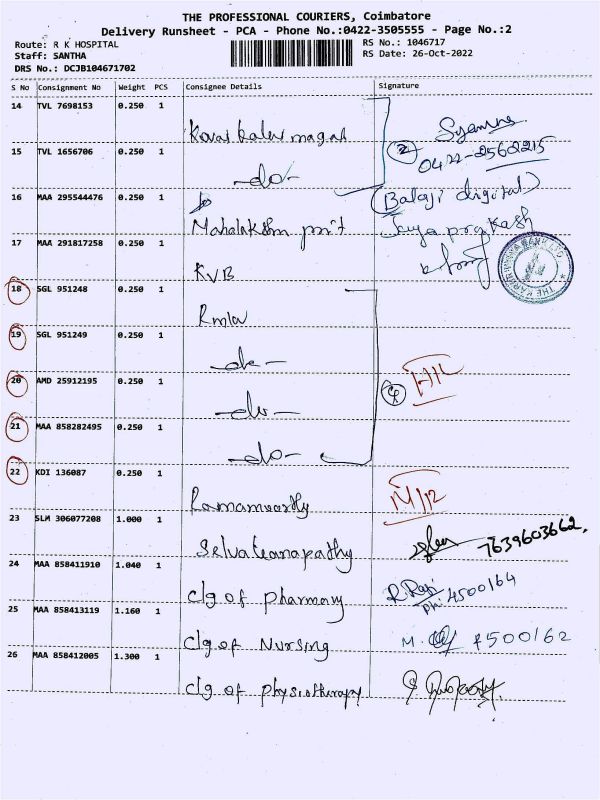 THE PROFESSIONAL COURIERS, Coimbatore
Delivery Runsheet - PCA - Phone No.:0422-3505555 - Page No.:2
Route: R K HOSPITAL
Staff: SANTHA
DRS No.: DCJB104671702
RS No.: 1046717
RS Date: 26-Oct-2022
S No Consignment No Weight PCS Consignee Details Signature
14 TVL 7698153 0.250 1
Kovai Kalai magal
Syamna
15 TVL 1656706 0.250 1
-do-
2 0422-2560215
16 MAA 295544476 0.250 1
(Balaji digital)
Mahalakshmi print Jaya prakash
17 MAA 291817258 0.250 1
KVB
18 SGL 951248 0.250 1
19 SGL 951249 0.250 1
-do-
20 AMD 25912195 0.250 1
-do-
4
21 MAA 858282495 0.250 1
-do-
22 KDI 136087 0.250 1
Ramamoorthy
23 SLM 306077208 1.000 1
Selvaganapathy 7639603662
24 MAA 858411910 1.040 1
R. Raji
clg of pharmacy ph: 4500164
25 MAA 858413119 1.160 1
clg of Nursing 4500162
26 MAA 858412005 1.300 1
clg of physiotherapy